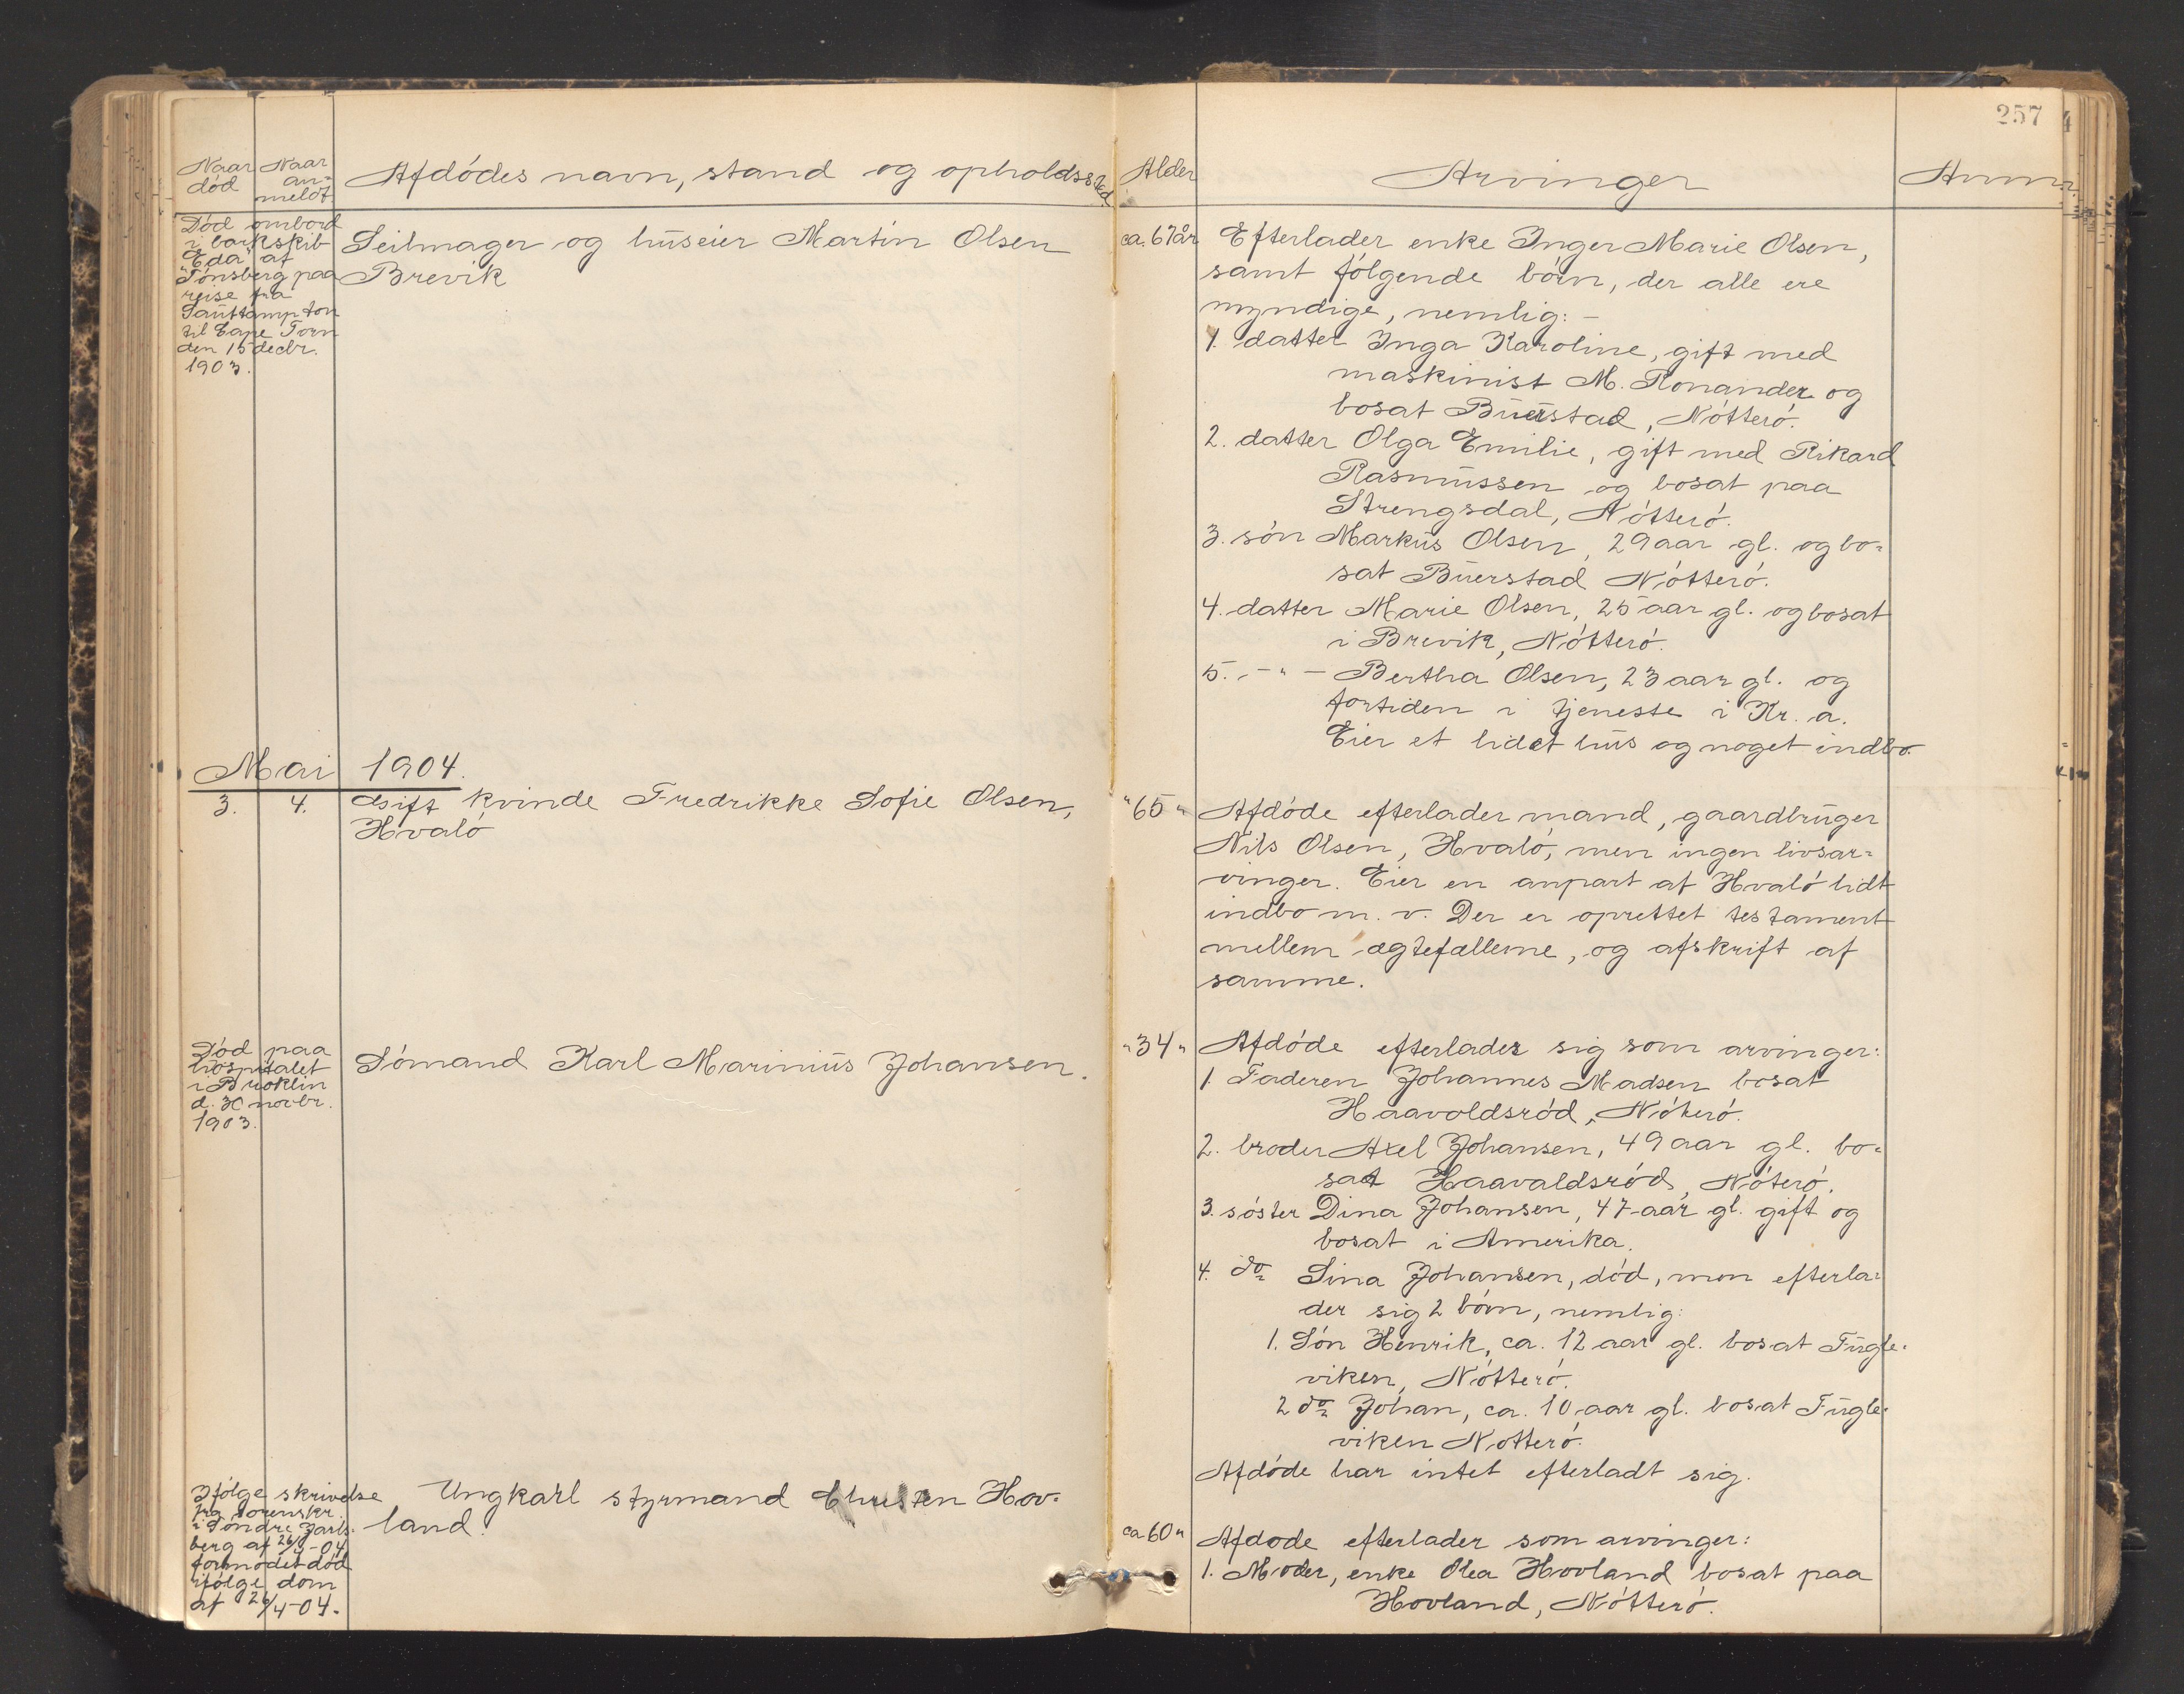 257
Naar død
Naar an=
meldt
Afdødes navn, stand og opholdssted
Alder
Arvinger
Anm.
Død ombord
i barkskib
"Eda" af
Tønsberg paa
reise fra
Sauttampton
til Cape Torn
den 15 decbr.
1903.
Seilmager og huseier Martin Olsen
Brevik
ca. 67 år
Efterlader enke Inger Marie Olsen,
samt følgende børn, der alle ere
myndige, nemlig: -
1. datter Inga Karoline, gift med
maskinist M. Ronander og
bosat Buerstad, Nøtterø.
2. datter Olga Emilie, gift med Rikard
Rasmussen og bosat paa
Strengsdal, Nøtterø.
3. søn Markus Olsen, 29 aar gl. og bo=
sat Buerstad Nøtterø.
4. datter Marie Olsen, 25 aar gl. og bosat
i Brevik, Nøtterø.
5. - " - Bertha Olsen, 23 aar gl. og
fortiden i tjeneste i Kr. a.
Eier et lidet hus og noget indbo.
Mai 1904.
3. 4. Gift kvinde Fredrikke Sofie Olsen,
Hvalø
"65"
Afdøde efterlader mand, gaardbruger
Nils Olsen, Hvalø, men ingen livsar=
vinger. Eier en anpart af Hvalø lidt
indbo m. v. Der er oprettet testament
mellem ægtefællerne, og afskrift af
samme.
Død paa
hospitalet
i Bruklin
d. 30 novbr.
1903.
Sømand Karl Marinius Johansen.
"34"
Afdøde efterlader sig som arvinger:
1. Faderen Johannes Madsen bosat
Haavoldsrød, Nøterø.
2. broder Axel Johansen, 49 aar gl. bo=
sat Haavaldsrød, Nøterø.
3. søster Dina Johansen, 47 aar gl. gift og
bosat i Amerika.
4. do Sina Johansen, død, men efterla=
der sig 2 børn, nemlig:
1. Søn Henrik, ca. 12 aar gl. bosat Fugle=
viken, Nøtterø.
2 do Johan, ca. 10 aar gl. bosat Fugle=
viken Nøtterø.
Afdøde har intet efterladt sig.
Ifølge skrivelse
fra sorenskr.
i Søndre Jarls=
berg af 26/4-04
formodet død
ifølge dom
af 26/4-04.
Ungkarl styrmand Christen Hov=
land.
ca 60"
Afdøde efterlader som arvinger:
1. Moder, enke Olea Hovland bosat paa
Hovland, Nøtterø.